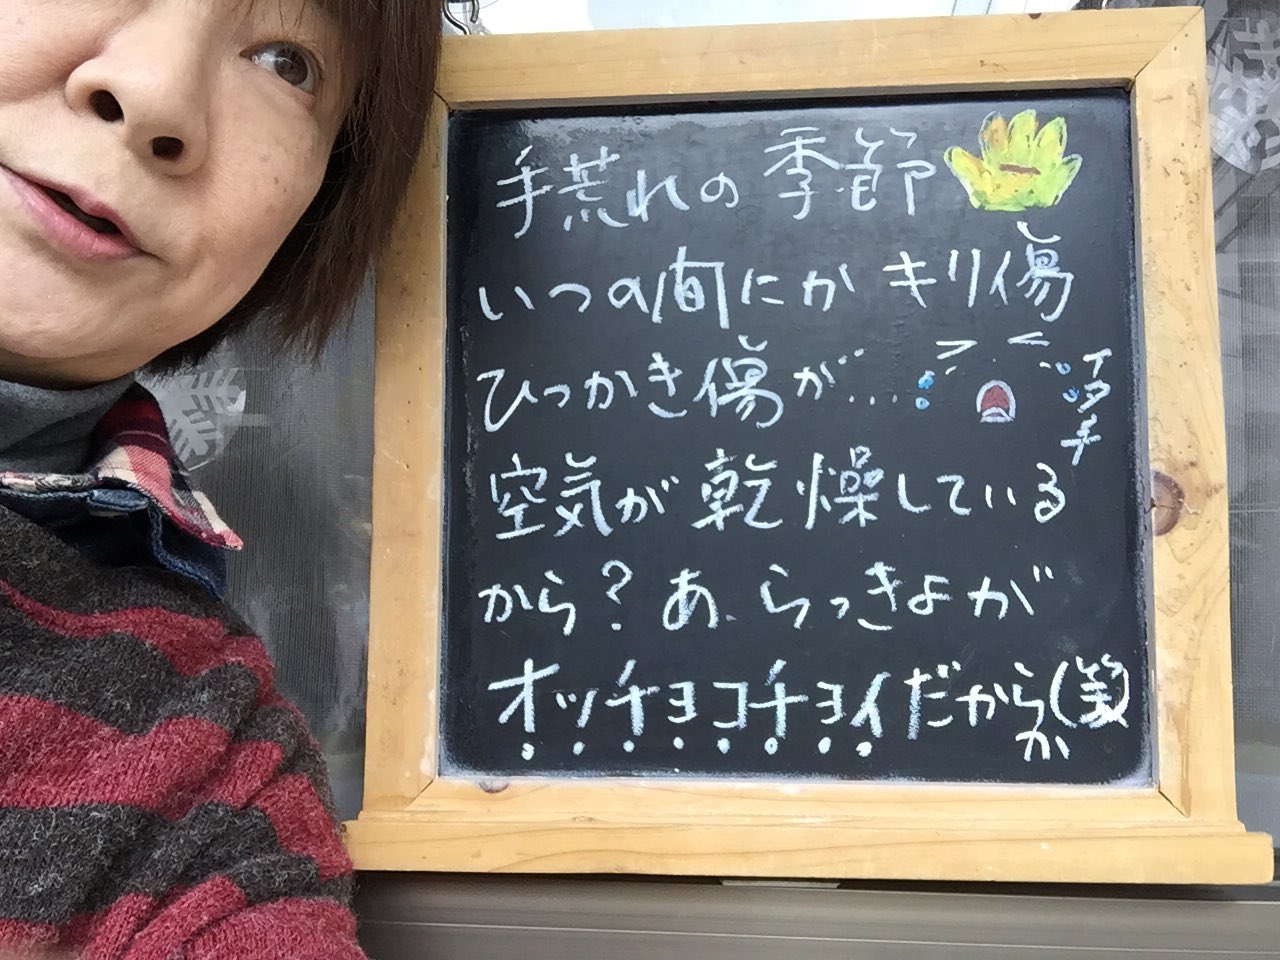 手荒れの季節
いつの間にかキリ傷
ひっかき傷が…
イタチ
空気が乾燥している
から？あ、らっきょが
オッチョコチョイだからか(笑)